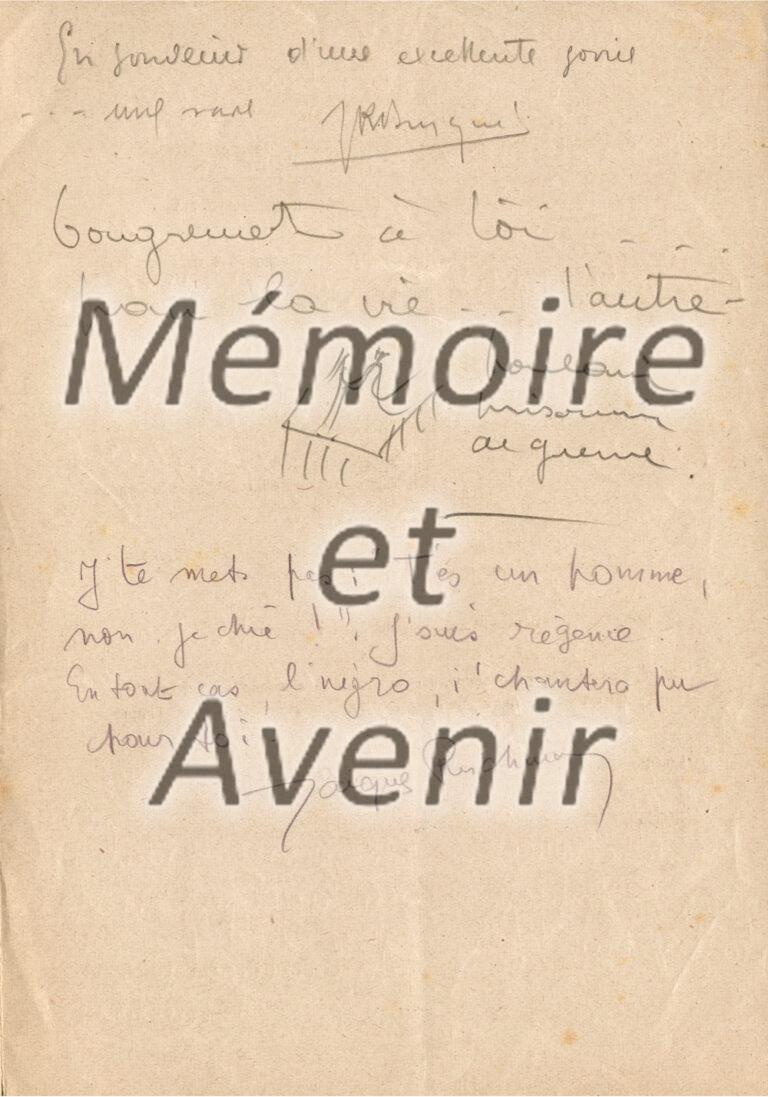 En souvenir d'une excellente soirée
... une vraie
bougrement à toi ....
pour la vie ... l'autre-
prisonnier
de guerre.
J'te mets pas ! T'es un homme,
non je chié !!! J'suis régénié.
En tout cas, l'négro, i' chantera pu
pour toi
Jacques
Mémoire
et
Avenir